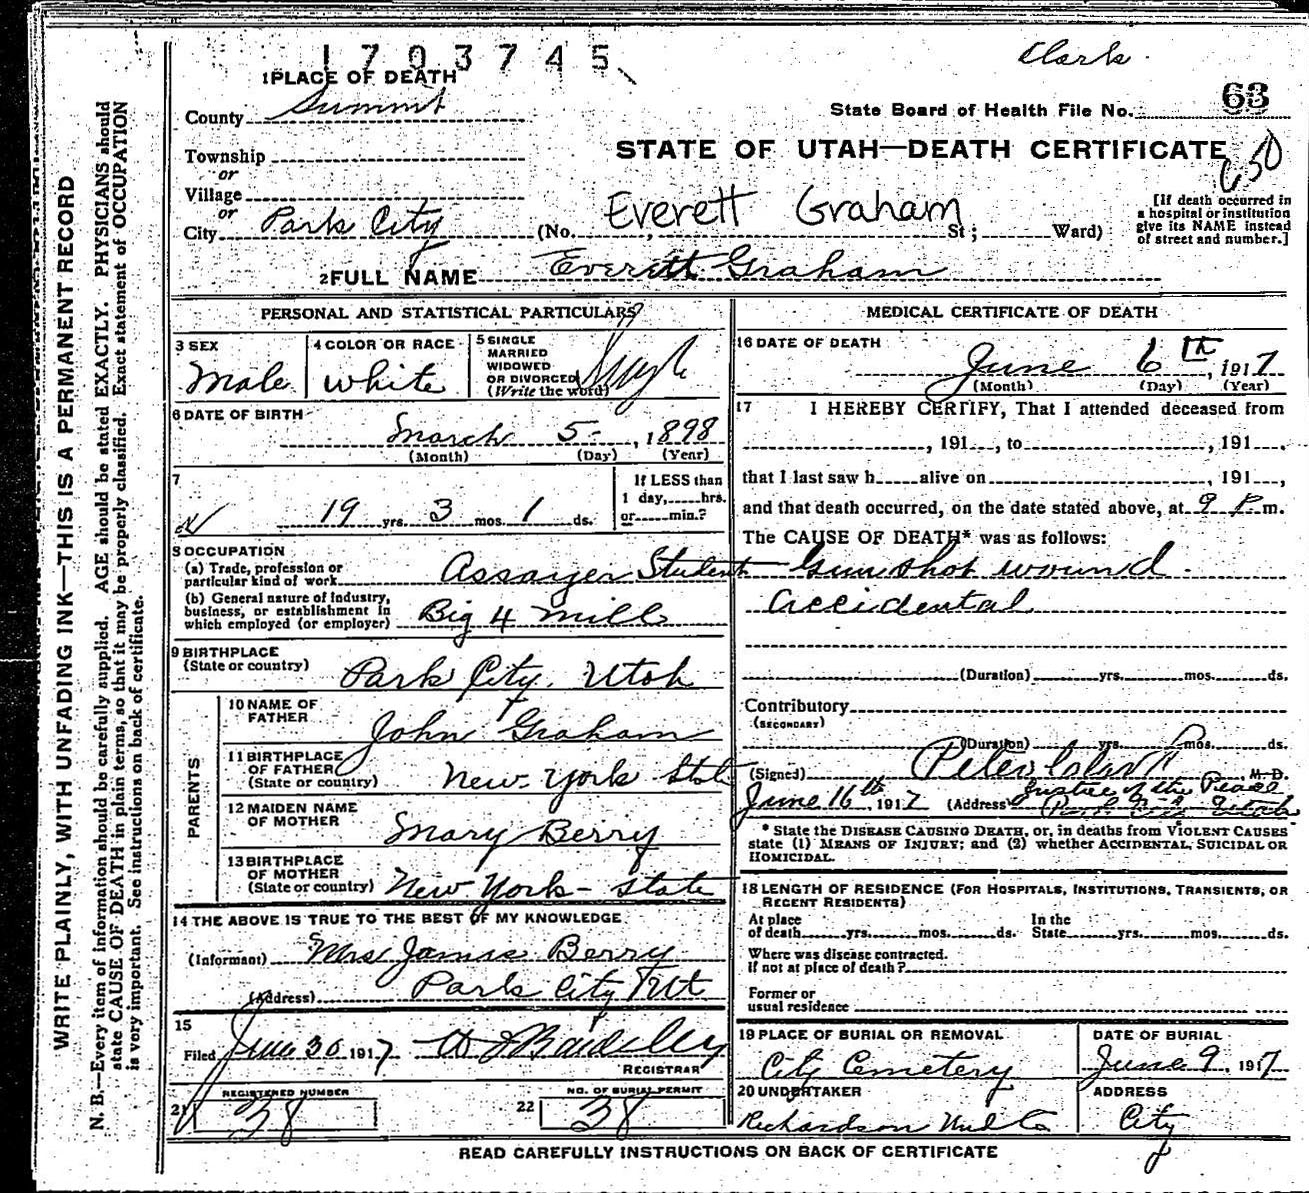 1703745
Clark.
1 PLACE OF DEATH
County Summit
State Board of Health File No. 63
Township
or
STATE OF UTAH—DEATH CERTIFICATE
650
Village
or
City Park City (No. , St; Ward)
Everett Graham
[If death occurred in
a hospital or institution
give its NAME instead
of street and number.]
2 FULL NAME Everett Graham
WRITE PLAINLY, WITH UNFADING INK—THIS IS A PERMANENT RECORD
N. B.—Every item of information should be carefully supplied. AGE should be stated EXACTLY. PHYSICIANS should
state CAUSE OF DEATH in plain terms, so that it may be properly classified. Exact statement of OCCUPATION
is very important. See instructions on back of certificate.
PERSONAL AND STATISTICAL PARTICULARS
3 SEX
Male
4 COLOR OR RACE
White
5 SINGLE
MARRIED
WIDOWED
OR DIVORCED
(Write the word)
Single
6 DATE OF BIRTH
March 5 , 1898
(Month) (Day) (Year)
7
19 yrs. 3 mos. 1 ds.
If LESS than
1 day, hrs.
or min.?
8 OCCUPATION
(a) Trade, profession or
particular kind of work Assayer Student
(b) General nature of industry,
business, or establishment in
which employed (or employer) Big 4 Mill
9 BIRTHPLACE
(State or country) Park City, Utah
PARENTS
10 NAME OF
FATHER John Graham
11 BIRTHPLACE
OF FATHER
(State or country) New York State
12 MAIDEN NAME
OF MOTHER Mary Berry
13 BIRTHPLACE
OF MOTHER
(State or country) New York - State
14 THE ABOVE IS TRUE TO THE BEST OF MY KNOWLEDGE
(Informant) Mrs James Berry
(Address) Park City Ut
15
Filed June 30 1917
REGISTRAR
21 REGISTERED NUMBER
38
22 NO. OF BURIAL PERMIT
38
MEDICAL CERTIFICATE OF DEATH
16 DATE OF DEATH
June 6th , 1917
(Month) (Day) (Year)
17 I HEREBY CERTIFY, That I attended deceased from
, 191 , to , 191 ,
that I last saw h alive on , 191 ,
and that death occurred, on the date stated above, at 9 P. m.
The CAUSE OF DEATH* was as follows:
Gun shot wound
accidental
(Duration) yrs. mos. ds.
Contributory
(SECONDARY)
(Duration) yrs. mos. ds.
(Signed) Peter Clark M. D.
Justice of the Peace
June 16th 1917 (Address) Park City Utah
* State the DISEASE CAUSING DEATH, or, in deaths from VIOLENT CAUSES
state (1) MEANS OF INJURY; and (2) whether ACCIDENTAL, SUICIDAL OR
HOMICIDAL.
18 LENGTH OF RESIDENCE (FOR HOSPITALS, INSTITUTIONS, TRANSIENTS, OR
RECENT RESIDENTS)
At place
of death yrs. mos. ds.
In the
State yrs. mos. ds.
Where was disease contracted.
If not at place of death?
Former or
usual residence
19 PLACE OF BURIAL OR REMOVAL
City Cemetery
DATE OF BURIAL
June 9 , 1917
20 UNDERTAKER
Richardson
ADDRESS
City
READ CAREFULLY INSTRUCTIONS ON BACK OF CERTIFICATE